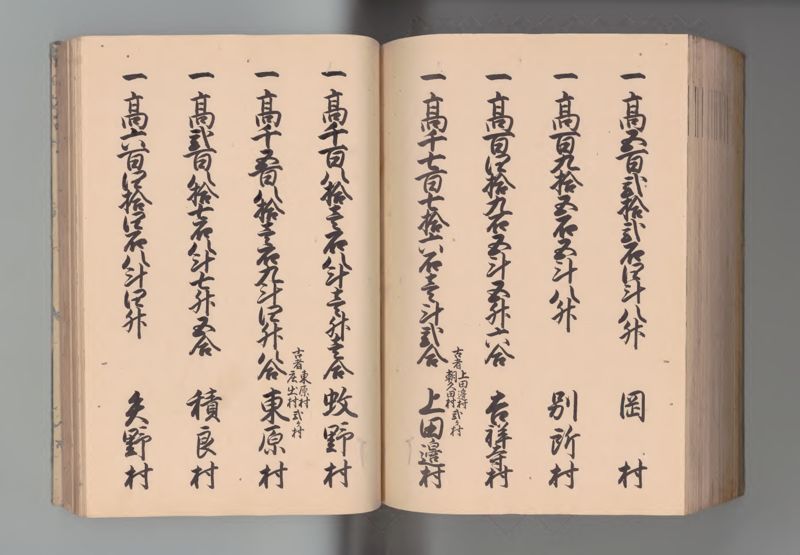 一 高五百弐拾弐石四斗八升 岡村
一 高百九拾五石五斗八升 別所村
一 高百四拾九石五斗五升六合 吉祥寺村
一 高千七百七拾六石壱斗弐合 上田邉村
古者 上田邉村 朝久田村 弐ヶ村
一 高千百八拾壱石八斗壱升壱合 蚊野村
一 高千五百八拾壱石九斗四升八合 東原村
古者 東原村 庄出村 弐ヶ村
一 高弐百八拾七石八斗七升五合 積良村
一 高六百四拾四石八斗四升 矢野村